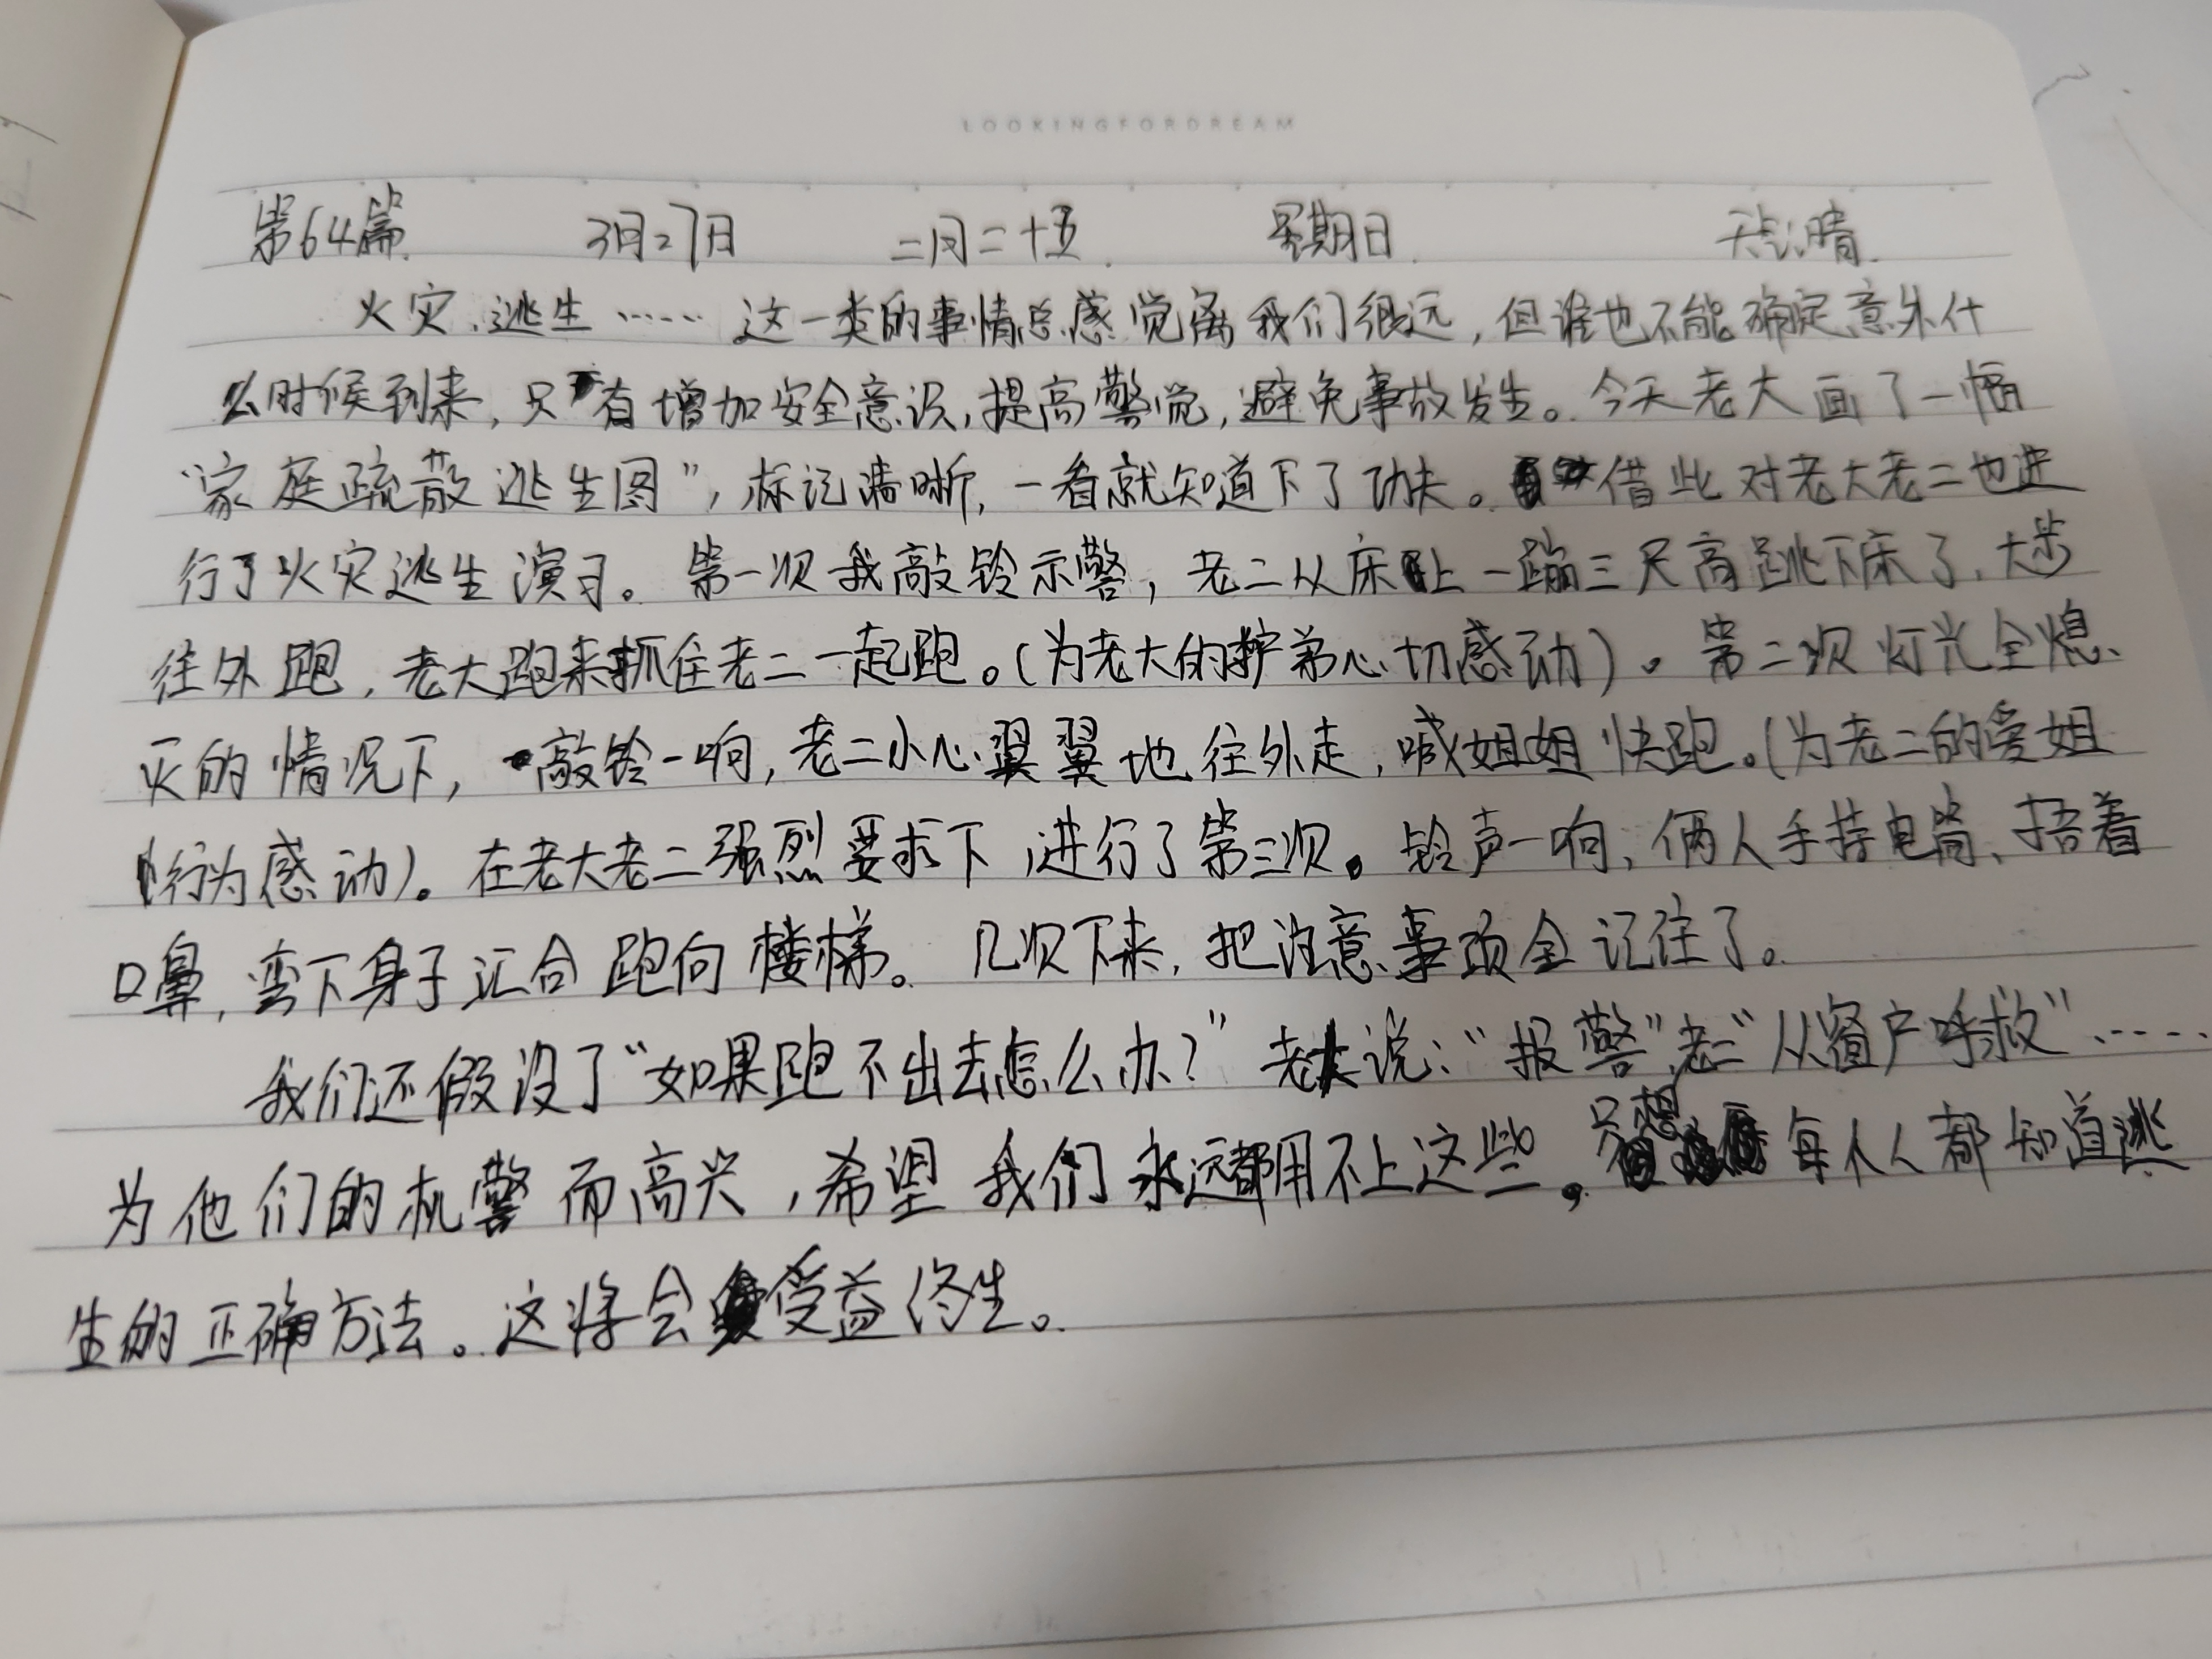 LOOKINGFORDREAM
第64篇. 3月27日 二月二十五. 星期日. 天气:晴.
火灾、逃生……这一类的事情总感觉离我们很远,但谁也不能确定意外什
么时候到来,只有增加安全意识,提高警觉,避免事故发生。今天老大画了一幅
“家庭疏散逃生图”,标记清晰,一看就知道下了功夫。借此对老大老二也进
行了火灾逃生演习。第一次我敲铃示警,老二从床上一蹦三尺高跳下床了,大步
往外跑,老大跑来抓住老二一起跑。(为老大的护弟心切感动)。第二次灯光全熄
灭的情况下,敲铃一响,老二小心翼翼地往外走,喊姐姐快跑。(为老二的爱姐
行为感动)。在老大老二强烈要求下,进行了第三次。铃声一响,俩人手持电筒、捂着
口鼻,弯下身子汇合跑向楼梯。几次下来,把注意事项全记住了。
我们还假设了“如果跑不出去怎么办?”老大说:“报警”老二“从窗户呼救”……
为他们的机警而高兴,希望我们永远都用不上这些。只想每个人都知道逃
生的正确方法。这将会受益终生。